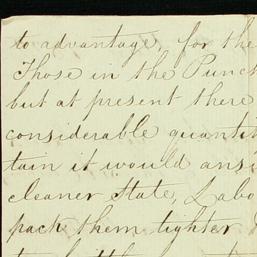 to advantage, for the
Those in the Punc
but at present there
considerable quantit
tain it would ans
cleaner State, Labo
pack them tighter